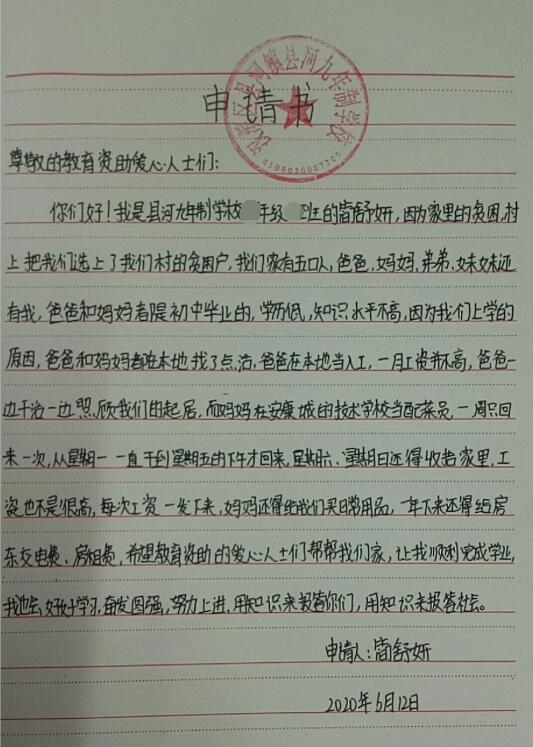 申请书
汉滨区县河镇县河九年制学校
6109020007705
尊敬的教育资助爱心人士们:
你们好!我是县河九年制学校年级班的简舒妍,因为家里的贫困,村
上把我们选上了我们村的贫困户,我们家有五口人,爸爸,妈妈,弟弟,妹妹还
有我,爸爸和妈妈都是初中毕业的,学历低,知识水平不高,因为我们上学的
原因,爸爸和妈妈都在本地找了点活,爸爸在本地当小工,一月工资并不高,爸爸一
边干活一边照顾我们的起居,而妈妈在安康城的技术学校当配菜员,一周只回
来一次,从星期一一直干到星期五的下午才回来,星期六、星期日还得收拾家里,工
资也不是很高,每次工资一发下来,妈妈还得给我们买日常用品,一年下来还得给房
东交电费、房租费,希望教育资助的爱心人士们帮帮我们家,让我顺利完成学业,
我也会好好学习,奋发图强,努力上进,用知识来报答你们,用知识来报答社会。
申请人:简舒妍
2020年6月12日